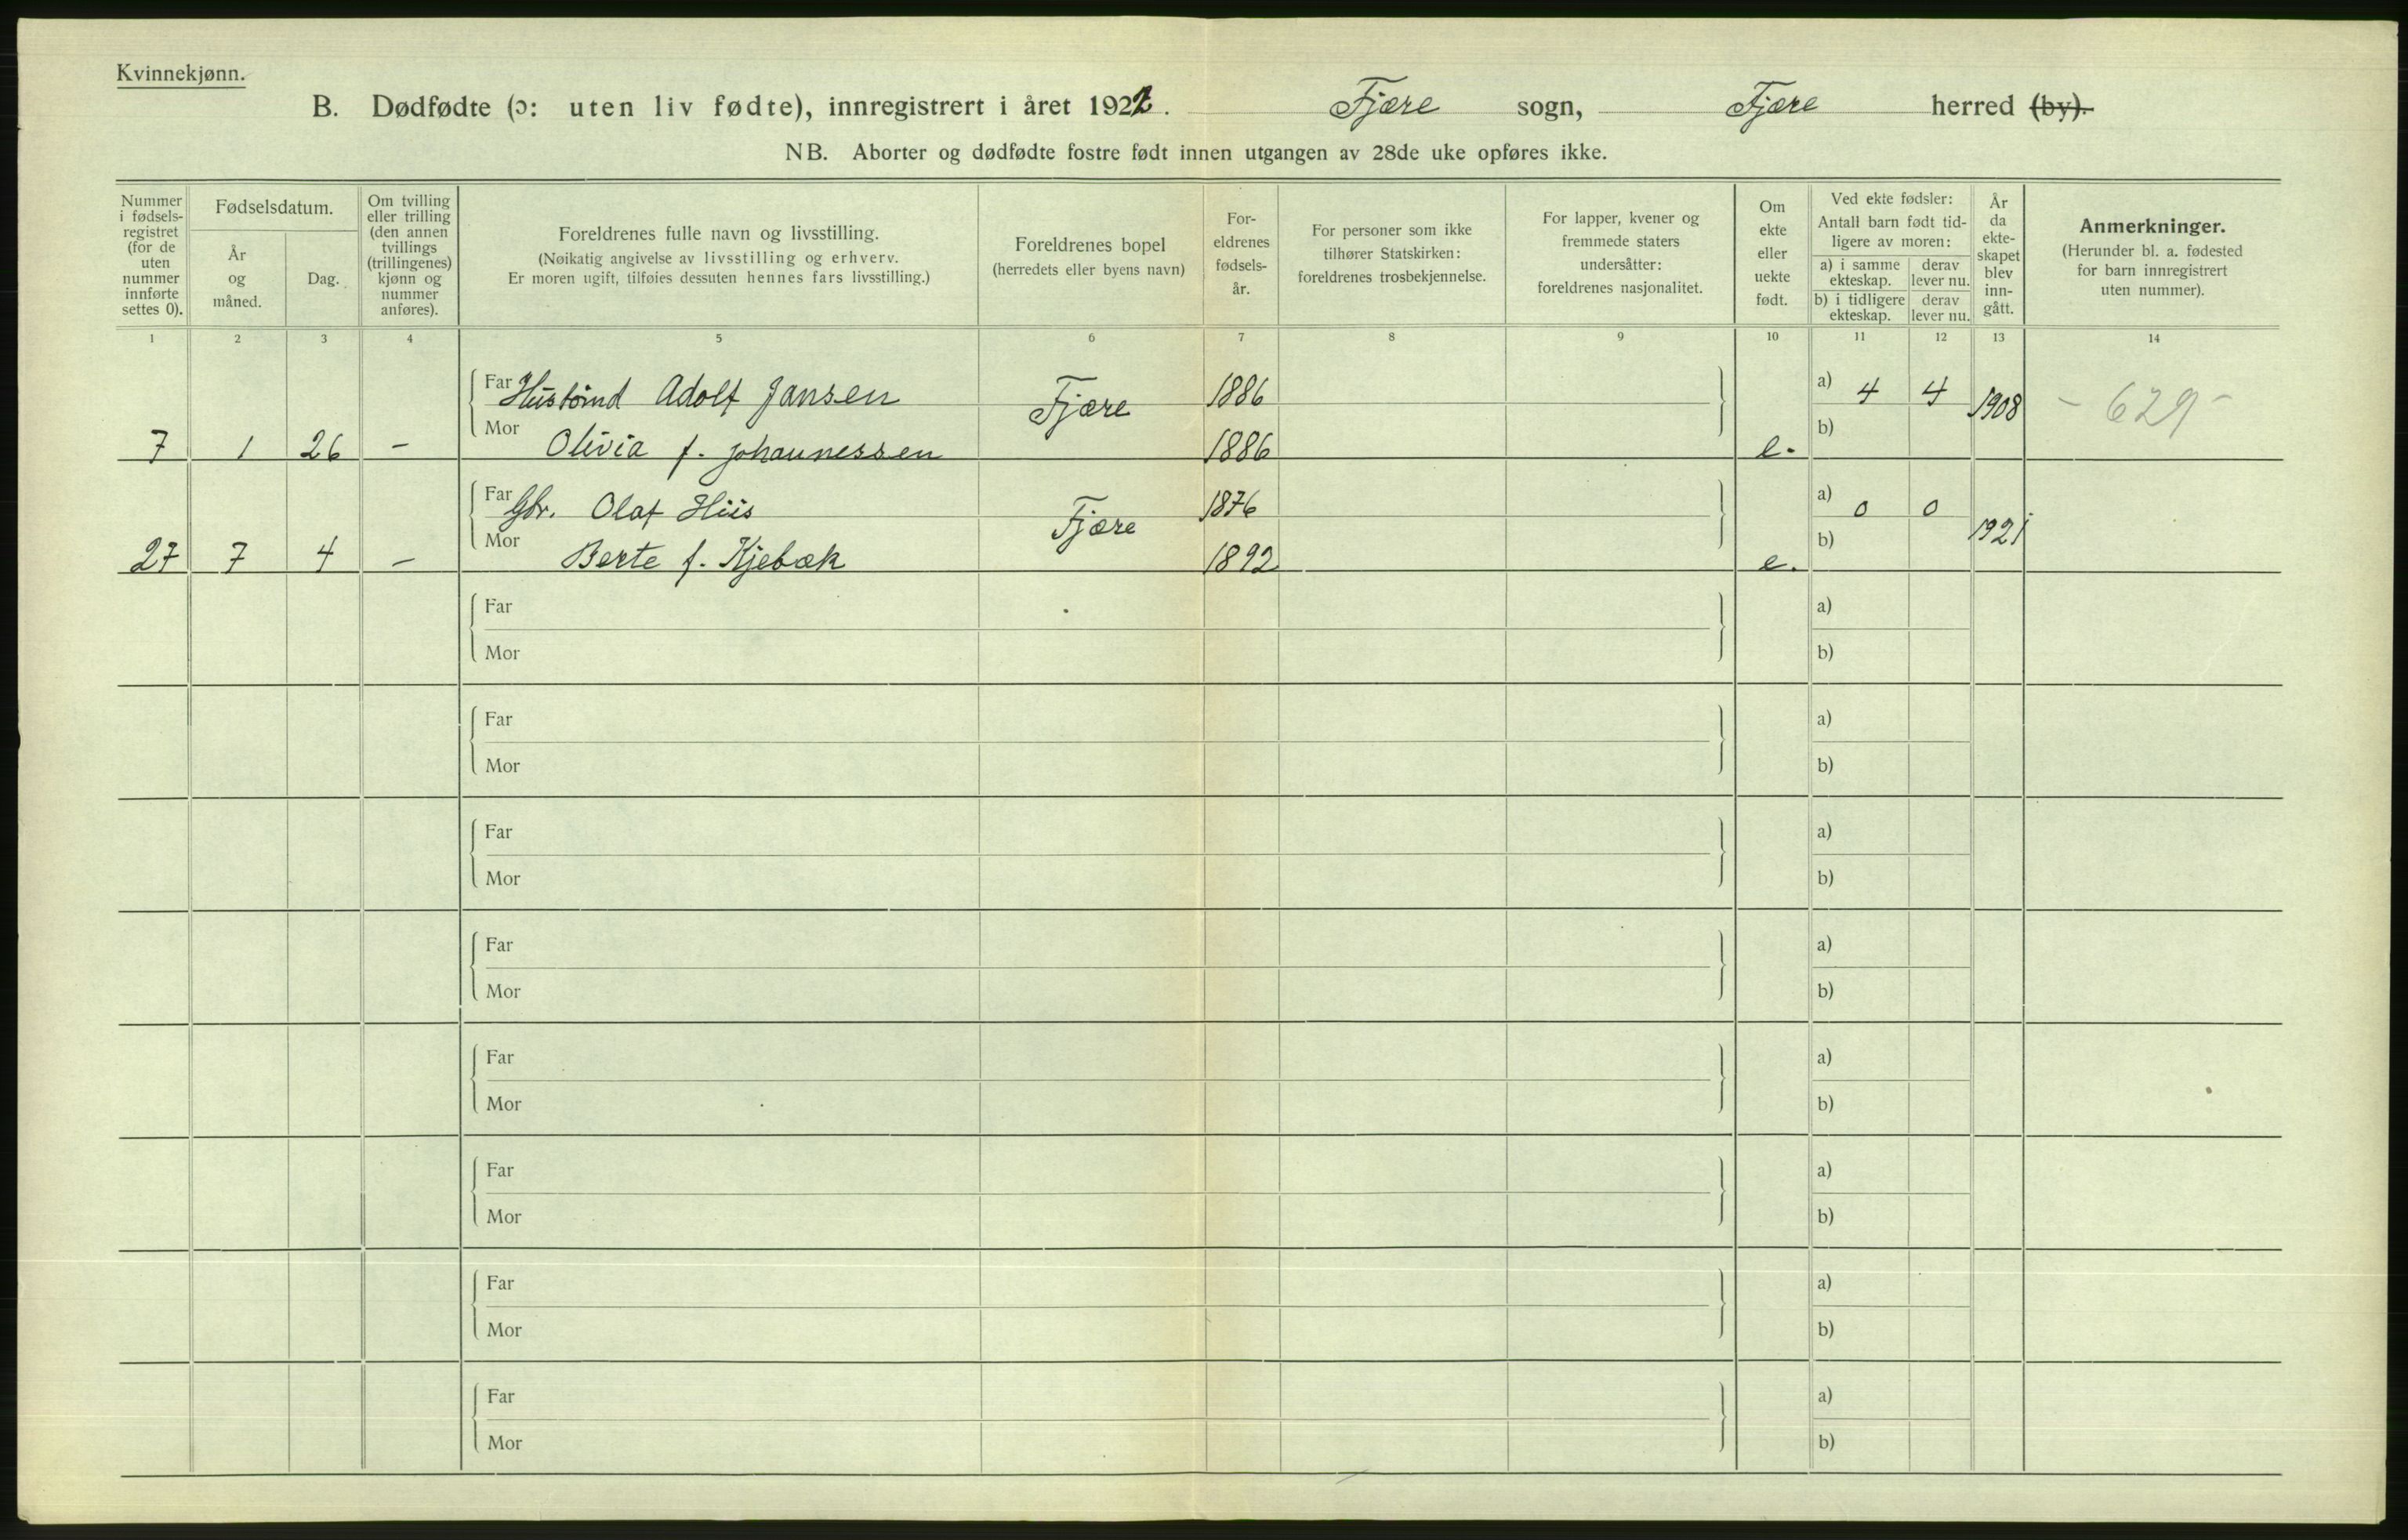 Kvinnekjønn.
B. Dødfødte (ɔ: uten liv fødte), innregistrert i året 1922. Fjære sogn, Fjære herred (by).
NB. Aborter og dødfødte fostre født innen utgangen av 28de uke opføres ikke.
Nummer i fødsels-registret (for de uten nummer innførte settes 0).
Fødselsdatum.
År og måned.
Dag.
Om tvilling eller trilling (den annen tvillings (trillingenes) kjønn og nummer anføres).
Foreldrenes fulle navn og livsstilling.
(Nøikatig angivelse av livsstilling og erhverv.
Er moren ugift, tilføies dessuten hennes fars livsstilling.)
Foreldrenes bopel
(herredets eller byens navn)
For-eldrenes fødsels-år.
For personer som ikke tilhører Statskirken: foreldrenes trosbekjennelse.
For lapper, kvener og fremmede staters undersåtter: foreldrenes nasjonalitet.
Om ekte eller uekte født.
Ved ekte fødsler:
Antall barn født tid-ligere av moren:
a) i samme ekteskap.
derav lever nu.
b) i tidligere ekteskap.
derav lever nu.
År da ekte-skapet blev inn-gått.
Anmerkninger.
(Herunder bl. a. fødested for barn innregistrert uten nummer).
1 2 3 4 5 6 7 8 9 10 11 12 13 14
Far Adolf Jansen Fjære 1886 a) 4 4 1908 - 629 -
7 1 26 - Mor Olivia f. Johannessen 1886 e. b)
Far Gbr. Olaf Hiis Fjære 1876 a) 0 0 1921
27 7 4 - Mor Berte f. Kjebæk 1892 e. b)
Far a)
Mor b)
Far a)
Mor b)
Far a)
Mor b)
Far a)
Mor b)
Far a)
Mor b)
Far a)
Mor b)
Far a)
Mor b)
Far a)
Mor b)